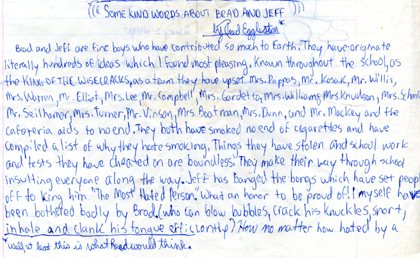 SOME KIND WORDS ABOUT BRAD AND JEFF
by Chad Eggleston
Brad and Jeff are fine boys who have contributed so much to Earth. They have originate
literally hundreds of ideas which I found most pleasing. Known throughout the school, as
the KING OF THE WISECRACKS, as a team they have upset Mrs. Pappas, Mr. Kosak, Mr. Willis,
Mrs. Warren, Mr. Elliot, Mrs. Lee Mr. Campbell, Mrs. Gardetto, Mrs. Williams, Mrs. Knudson, Mrs.
Mr. Seilhamor, Mrs. Turner, Mr. Vinson, Mrs. Bootman, Mrs. Dunn, and Mr. Mackey and the
cafeteria aids to no end. They both have smoked no end of cigarettes and have
compiled a list of why they hate smoking. Things they have stolen and school work
and tests they have cheated on are boundless. They make their way through school
insulting everyone along the way. Jeff has banged the bongs which have set people
off to king him "The Most Hated Person." What an honor to be proud of! I myself have
been bothered badly by Brad, (who can blow bubbles, crack his knuckles, snort,
inhole and clank his tongue efficiently) How no matter how hated by a
well at least this is what Brad would think.